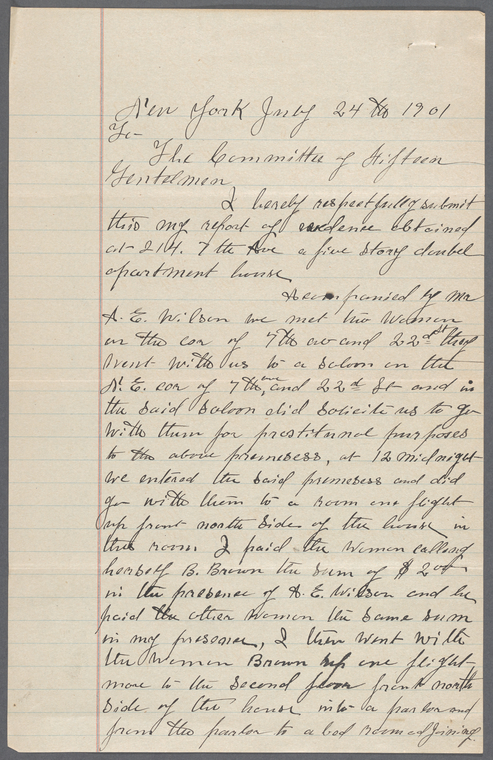 New York July 24th 1901
To
The Committee of Fifteen
Gentelmen
I hereby respectfully submit
this my report of evedence obtained
at 214. 7th Ave a five story doubel
apartment house
Acompanied by mr
A. E. Wilson we met two women
on the cor of 7th av and 22d st they
went with us to a saloon on the
N. E. cor of 7th ave and 22d St and in
the said saloon did solicite us to go
with them for prostitunal purposes
to the above premesess, at 12 midnight
we entered the said premesess and did
go with them to a room one flight
up front north side of the house in
this room I paid the woman calling
herself B. Brown the sum of $2.00
in the presence of A. E. Wilson and he
paid the other woman the same sum
in my presence, I then went with
the woman Brown up one flight
more to the second floor front north
side of the house into a parlor and
from the parlor to a bed room adjoining